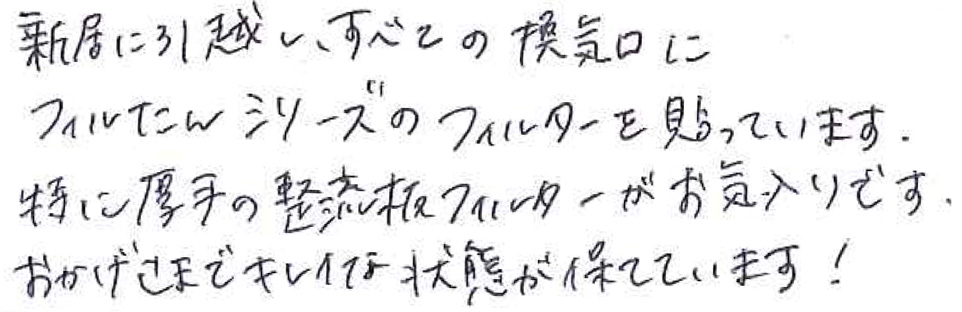 新居に引越し、すべての換気口に
フィルたんシリーズのフィルターを貼っています.
特に厚手の整流板フィルターがお気入りです.
おかげさまでキレイな状態が保てています！